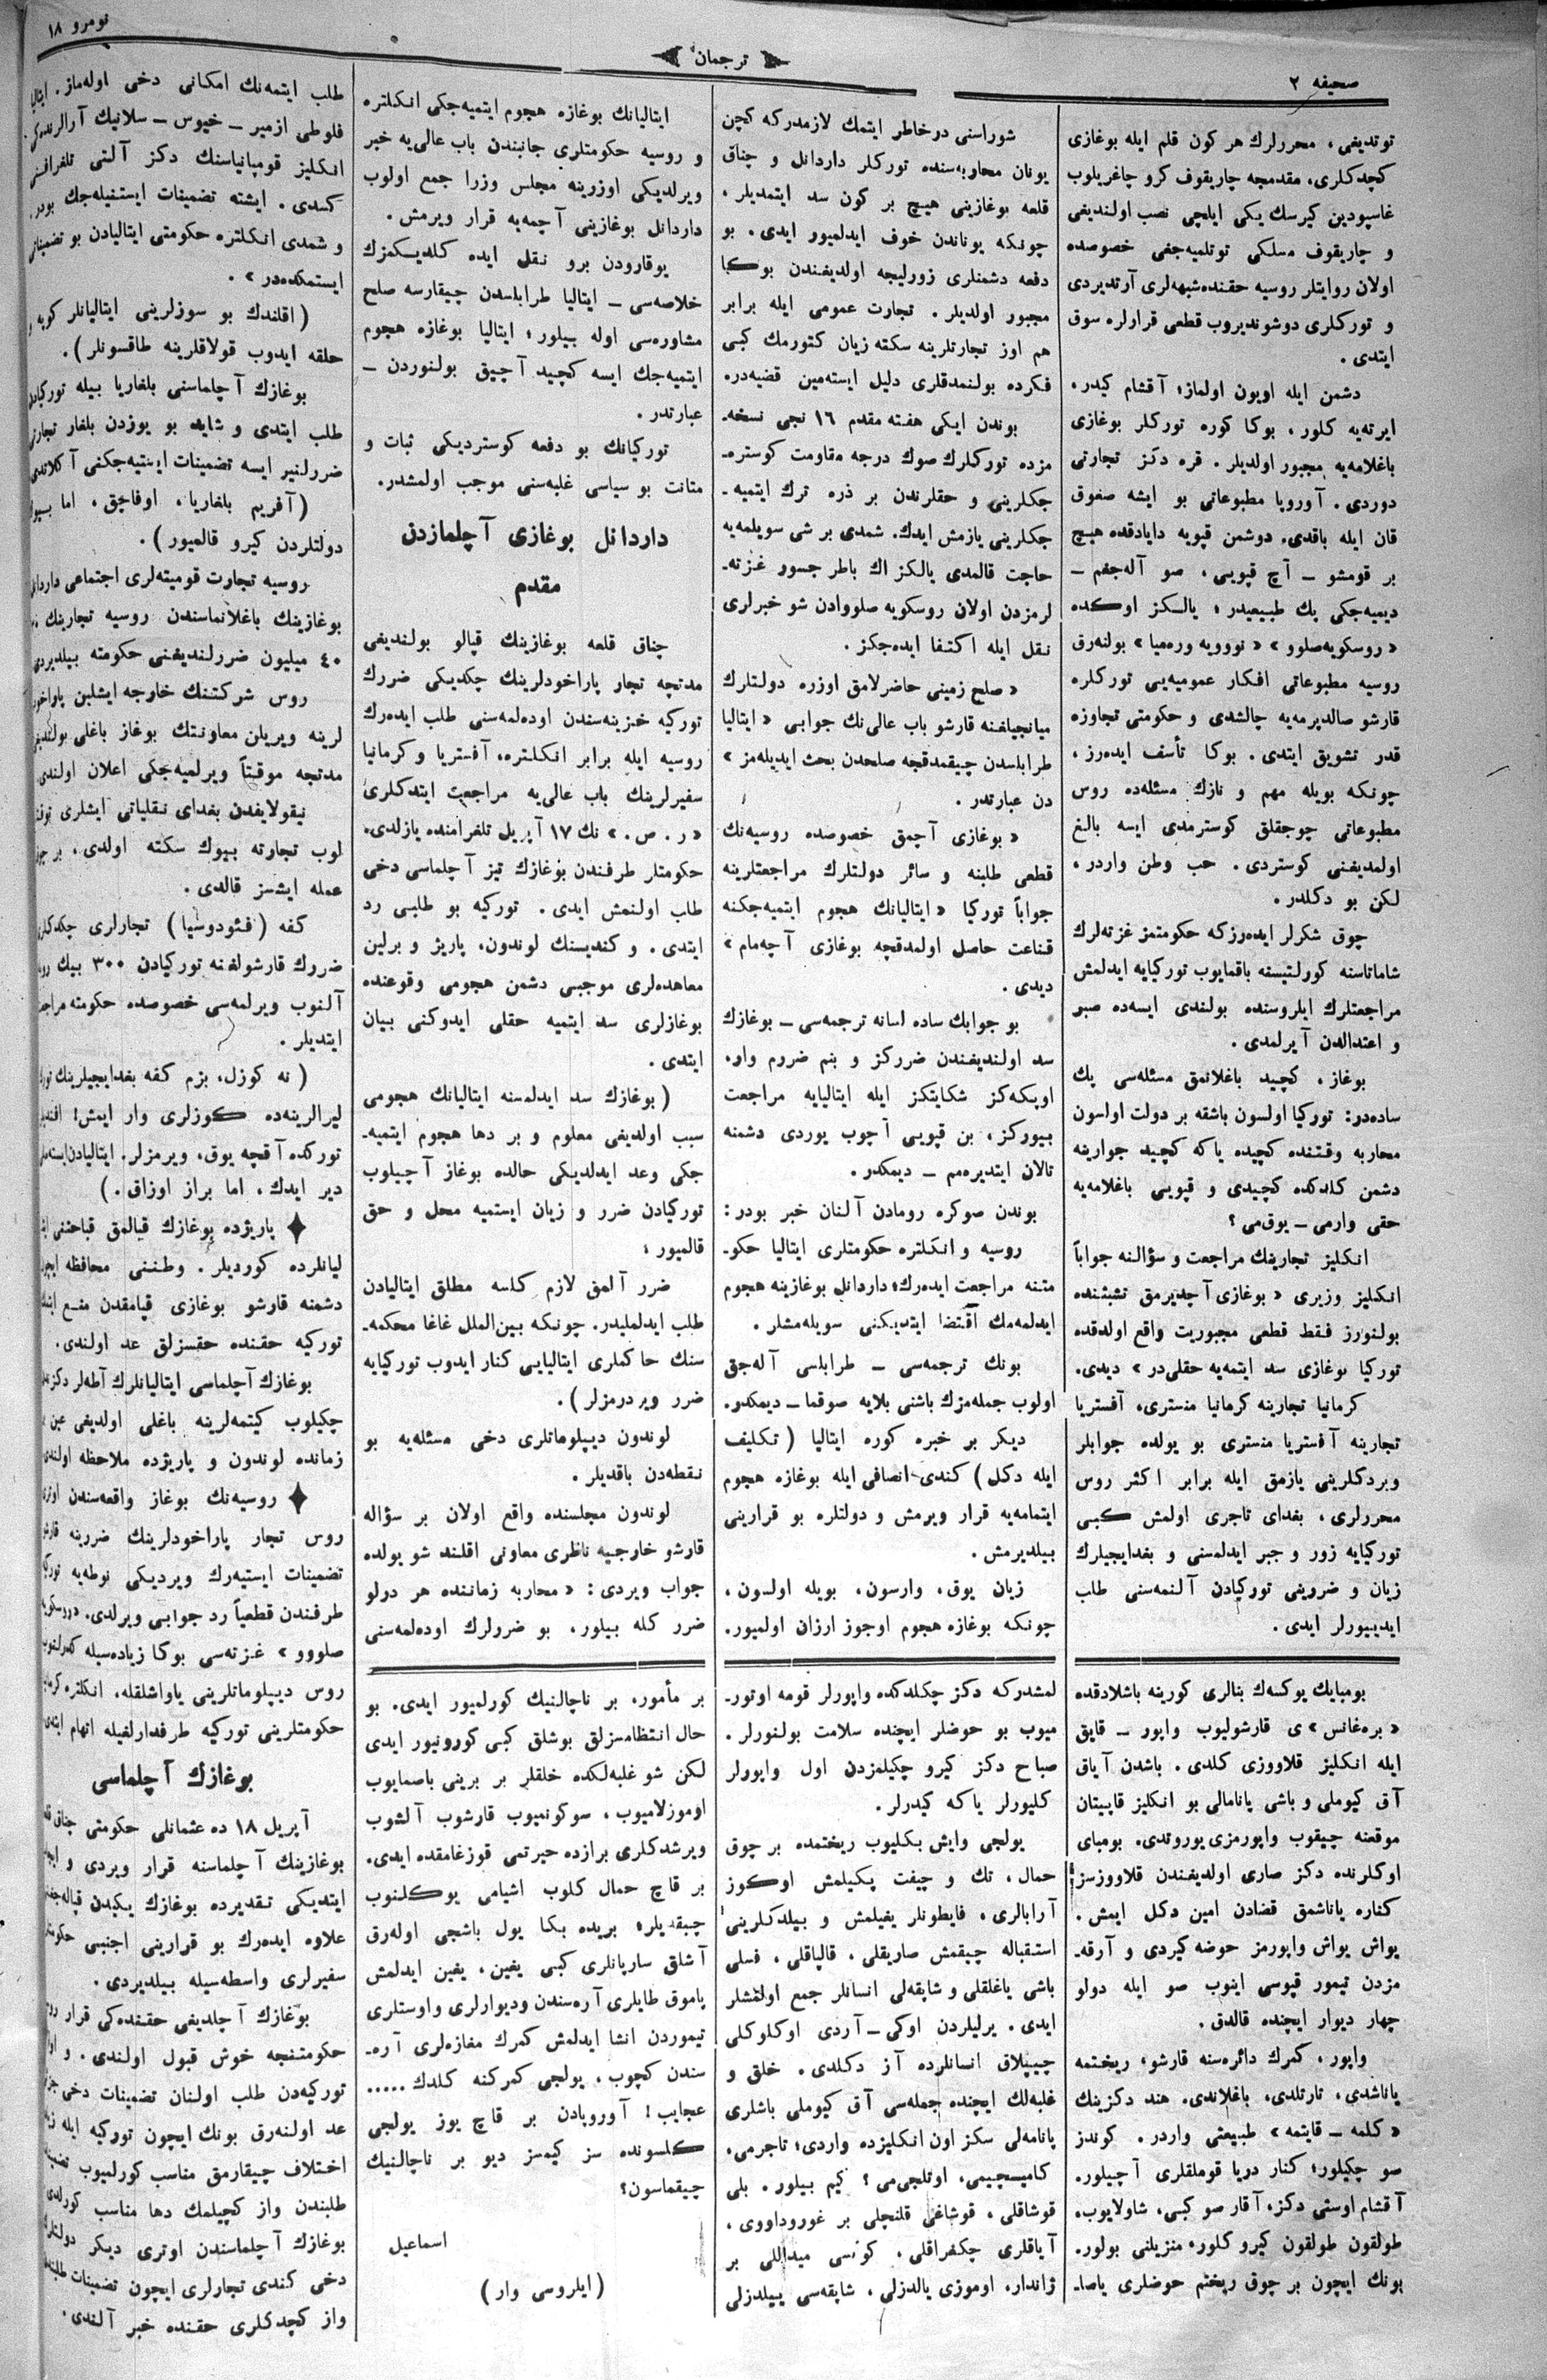 صحیفه ٢
ترجمان
نومرو ١٨
توتدیغی، محررلرك هر كون قلم ایله بوغازی
كچدكلری، مقدمجه چاریقوف كرو چاغریلوب
غاسپودین كیرسك یكی ایلچی نصب اولندیغی
و چاریقوف مسلكی توتلمیه‌جغی خصوصده
اولان روایتلر روسیه حقنده شبهه‌لری آرتدیردی
و توركلری دوشوندیروب قطعی قرارلره سوق
ایتدی.
دشمن ایله اویون اولماز؛ آقشام كیدر،
ایرته‌یه كلور، بوكا كوره توركلر بوغازی
باغلامه‌یه مجبور اولدیلر. قره دكز تجارتی
دوردی. آوروپا مطبوعاتی بو ایشه صغوق
قان ایله باقدی. دوشمن قپویه دایادقده هیچ
بر قومشو ــ آچ قپویی، صو آله‌جغم ــ
دیمیه‌جكی پك طبیعیدر؛ یالـكز اوكده
«روسكویه صلوو» «نوویه وره‌میا» بولنه‌رق
روسیه مطبوعاتی افـكار عمومیه‌یی توركلره
قارشو صالدیرمه‌یه چالشدی و حكومتی تجاوزه
قدر تشویق ایتدی. بوكا تأسف ایده‌رز،
چونكه بویله مهم و نازك مسئله‌ده روس
مطبوعاتی چوجقلق كوسترمدی ایسه بالـغ
اولمدیغنی كوستردی. حب وطن واردر،
لـكن بو دكلدر.
چوق شكرلر ایده‌رزكه حكومتمز غزته‌لرك
شاماتاسنه كورلـتیسنه باقمایوب توركیایه ایدلمش
مراجعتلرك ایلروسنده بولندی ایسه‌ده صبر
و اعتدالدن آیرلمدی.
بوغاز، كچید باغلانمق مسئله‌سی پك
ساده‌در: توركیا اولسون باشقه بر دولت اولسون
محاربه وقتنده كچیده یاكه كچید جوارینه
دشمن كلدكده كچیدی و قپویی باغلامه‌یه
حقی وارمی ــ یوق‌می؟
انكلیز تجارینك مراجعت و سؤالنه جواباً
انكلیز وزیری «بوغازی آچدیرمق تشبثنده
بولنورز فـقط قطعی مجبوریت واقع اولدقده
توركیا بوغازی سد ایتمه‌یه حقلی‌در» دیدی.
كرمانیا تجارینه كرمانیا منستری، آفستریا
تجارینه آفستریا منستری بو یولده جوابلر
ویردكلرینی یازمق ایله برابر اكثر روس
محررلری، بغدای تاجری اولمش كـبی
توركیایه زور و جبر ایدلمسنی و بغدایجیلرك
زیان و ضرورینی توركیادن آلنمه‌سنی طلب
ایدییورلر ایدی.
شوراسنی در خاطر ایتمك لازمدركه كچن
یونان محاربه‌سنده توركلر داردانل و چناق
قلعه بوغازینی هیچ بر كون سد ایتمدیلر،
چونكه یوناندن خوف ایدلمیور ایدی. بو
دفعه دشمنلری زورلیجه اولدیغندن بوكا
مجبور اولدیلر. تجارت عمومی ایله برابر
هم اوز تجارتلرینه سكته زیان كتورمك كبی
فكرده بولنمدقلری دلیل ایسته‌مین قضیه‌در.
بوندن ایكی هفته مقدم ١٦ نجی نسخه‌ـ
مزده توركلرك صوك درجه مقاومت كوستره‌ـ
جكلرینی و حقلرندن بر ذره ترك ایتمیه‌ـ
جكلرینی یازمش ایدك. شمدی بر شی سویلمه‌یه
حاجت قالمدی یالكز اك باطر جسور غزته‌ـ
لرمزدن اولان روسكویه صلووادن شو خبرلری
نقل ایله اكتفا ایده‌جكز.
«صلح زمینی حاضرلامق اوزره دولتلرك
میانجیلغنه قارشو باب عالی‌نك جوابی «ایتالیا
طرابلسدن چیقمدقجه صلحدن بحث ایدیله‌مز»
دن عبارتدر.
«بوغازی آچمق خصوصده روسیه‌نك
قطعی طلبنه و سائر دولتلرك مراجعتلرینه
جواباً توركیا «ایتالیانك هجوم ایتمیه‌جكنه
قناعت حاصل اولمدقجه بوغازی آچه‌مام»
دیدی.
بو جوابك ساده لسانه ترجمه‌سی ــ بوغازك
سد اولندیغندن ضرركز و بنم ضررم وار،
اوپكه‌كز شكایتكز ایله ایتالیایه مراجعت
بیوركز، بن قپویی آچوب یوردی دشمنه
تالان ایتدیره‌مم ــ دیمكدر.
بوندن صوكره رومادن آلنان خبر بودر:
روسیه و انكلتره حكومتلری ایتالیا حكوـ
متنه مراجعت ایده‌رك؛ داردانل بوغازینه هجوم
ایدلمه‌مك اقتضا ایتدیكنی سویله‌مشلر.
بونك ترجمه‌سی ــ طرابلسی آله‌جق
اولوب جمله‌مزك باشنی بلایه صوقما ــ دیمكدر.
دیكر بر خبره كوره ایتالیا (تكلیف
ایله دكل) كندی انصافی ایله بوغازه هجوم
ایتمامه‌یه قرار ویرمش و دولتلره بو قرارینی
بیلدیرمش.
زیان یوق، وارسون، بویله اولسون،
چونكه بوغازه هجوم اوجوز ارزان اولمیور.
ایتالیانك بوغازه هجوم ایتمیه‌جكی انـكلتره
و روسیه حكومتلری جانبندن باب عالی‌یه خبر
ویرلدیكی اوزرینه مجلس وزرا جمع اولوب
داردانل بوغازینی آچمه‌یه قرار ویرمش.
یوقارودن برو نقل ایده كلدیـكمزك
خلاصه‌سی ــ ایتالیا طرابلسدن چیقارسه صلح
مشاوره‌سی اوله بیلور؛ ایتالیا بوغازه هجوم
ایتمیه‌جك ایسه كچید آچیق بولنوردن ــ
عبارتدر.
توركیانك بو دفعه كوستردیكی ثبات و
متانت بو سیاسی غلبه‌سنی موجب اولمشدر.
داردانل بوغازی آچلمازدن
مقدم
چناق قلعه بوغازینك قپالو بولندیغی
مدتجه تجار پاراخودلرینك چكدیكی ضررك
توركیه خزینه‌سندن اوده‌لمه‌سنی طلب ایده‌رك
روسیه ایله برابر انكلتره، آفستریا و كرمانیا
سفیرلرینك باب عالی‌یه مراجعت ایتدكلری
«ر. ص.» نك ١٧ آپریل تلغرامنده یازلدی.
حكومتلر طرفندن بوغازك تیز آچلماسی دخی
طلب اولنمش ایدی. توركیه بو طلبی رد
ایتدی. و كندیسنك لوندون، پاریژ و برلین
معاهده‌لری موجبی دشمن هجومی وقوعنده
بوغازلری سد ایتمیه حقلی ایدوكنی بیان
ایتدی.
(بوغازك سد ایدلمسنه ایتالیانك هجومی
سبب اولدیغی معلوم و بر دها هجوم ایتمیه‌ـ
جكی وعد ایدلدیكی حالده بوغاز آچیلوب
توركیادن ضرر و زیان ایستمیه محل و حق
قالمیور؛
ضرر آلمق لازم كلسه مطلق ایتالیادن
طلب ایدلملیدر. چونكه بین‌الملل غاغا محكمه‌ـ
سنك حاكملری ایتالیایی كنار ایدوب توركیایه
ضرر ویردرمزلر).
لوندون دیپلوماتلری دخی مسئله‌یه بو
نقطه‌دن باقدیلر.
لوندون مجلسنده واقع اولان بر سؤاله
قارشو خارجیه ناظری معاونی اقلند شو یولده
جواب ویردی: «محاربه زماننده هر دولو
ضرر كله بیلور، بو ضررلرك اوده‌لمه‌سنی
طلب ایتمه‌نك امكانی دخی اوله‌ماز. ایتالیا
فلوطی ازمیر ــ خیوس ــ سلانیك آرالرنده‌كی
انكلیز قومپانیاسنك دكز آلتی تلغرافنی
كسدی. ایشته تضمینات ایستنیله‌جك بودر.
و شمدی انكلتره حكومتی ایتالیادن بو تضمیناتی
ایستمكده‌در».
(اقلندك بو سوزلرینی ایتالیانلر كوپه و
حلقه ایدوب قولاقلرینه طاقسونلر).
بوغازك آچلماسنی بلغاریا بیله توركیادن
طلب ایتدی و شاید بو یوزدن بلغار تجارتی
ضررلنیر ایسه تضمینات ایستیه‌جكنی آكلاتدی
(آفریم بلغاریا، اوفاجق، اما بیوك
دولتلردن كیرو قالمیور).
روسیه تجارت قومیته‌لری اجتماعی داردانل
بوغازینك باغلانماسندن روسیه تجارینك
٤٠ میلیون ضررلندیغنی حكومته بیلدیردی
روس شركتنك خارجه ایشلین پاراخود
لرینه ویریلن معاونتك بوغاز باغلی بولندیغی
مدتجه موقتاً ویرلمیه‌جكی اعلان اولندی
نیقولایفدن بغدای نقلیاتی ایشلری توقف
لوب تجارته بیوك سكته اولدی، بر چوق
عمله ایشسز قالدی.
كفه (فـئودوسیا) تجارلری چكدكلری
ضررك قارشولغنه توركیادن ٣٠٠ بیك
آلنوب ویرلمه‌سی خصوصده حكومته مراجعت
ایتدیلر.
(نه كوزل، بزم كفه بغدایجیلرینك
لیرالرینه‌ده كوزلری وار ایمش! افندیلر
توركده آقچه یوق، ویرمزلر. ایتالیادن
دیر ایدك، اما براز اوزاق.)
✦ پاریژده بوغازك قپالمق قباحتنی ایتا
لیانلرده كوردیلر. وطننی محافظه ایچون
دشمنه قارشو بوغازی قپامقدن منع ایتمك
توركیه حقنده حقسزلق عد اولندی.
بوغازك آچلماسی ایتالیانلرك آطه‌لر دكزندن
چكیلوب كیتمه‌لرینه باغلی اولدیغی عین
زمانده لوندون و پاریژده ملاحظه اولندی
✦ روسیه‌نك بوغاز واقعه‌سندن اوتری
روس تجار پاراخودلرینك ضررینه قارشو
تضمینات ایستیه‌رك ویردیكی نوطه‌یه توركیا
طرفندن قطعیاً رد جوابی ویرلدی. «روسكویه
صلووو» غزته‌سی بوكا زیاده‌سیله كدرلنوب
روس دیپلوماتلرینی یاواشلقله، انكلتره كرمانیا
حكومتلرینی توركیه طرفدارلغیله اتهام ایتدی
بوغازك آچلماسی
آپریل ١٨ ده عثمانلی حكومتی چناق قلعه
بوغازینك آچلماسنه قرار ویردی و ایجاب
ایتدیكی تقدیرده بوغازك یكیدن قپاله‌جغنی
علاوه ایده‌رك بو قرارینی اجنبی حكومتلر
سفیرلری واسطه‌سیله بیلدیردی.
بوغازك آچلدیغی حقنده‌كی قرار روس
حكومتنجه خوش قبول اولندی.
توركیه‌دن طلب اولنان تضمینات دخی
عد اولنه‌رق بونك ایچون توركیه ایله
اختلاف چیقارمق مناسب كورلمیوب تضمینات
طلبندن واز كچیلمك دها مناسب كورلدی
بوغازك آچلماسندن اوتری دیكر دولتلرك
دخی كندی تجارلری ایچون تضمینات طلبندن
واز كچدكلری حقنده خبر آلندی.
بومبایك یوكسه‌ك بنالری كورینه باشلادقده
«بره‌غانس»ی قارشولیوب واپور ــ قایق
ایله انكلیز قلاووزی كلدی. باشدن آیاق
آق كیوملی و باشی پانامالی بو انكلیز قاپیتان
موقعنه چیقوب واپورمزی یوروتدی. بومبای
اوكلرنده دكز صاری اولدیغندن قلاووزسز
كناره یاناشمق قضادن امین دكل ایمش.
یواش یواش واپورمز حوضه كیردی و آرقه‌ـ
مزدن تیمور قپوسی اینوب صو ایله دولو
چهار دیوار ایچنده قالدق.
واپور، كمرك دائره‌سنه قارشو، ریختمه
یاناشدی، تارتلدی، باغلاندی. هند دكزینك
«كلمه ــ قایتمه» طبیعتی واردر. كوندز
صو چكیلور؛ كنار دریا قوملقلری آچیلور.
آقشام اوستی دكز، آقار صو كبی، شاولایوب،
طولقون طولقون كیرو كلور، منزیلنی بولور.
بونك ایچون بر چوق ریختم حوضلری یاصاـ
لمشدركه دكز چكلدكده واپورلر قومه اوتورـ
میوب بو حوضلر ایچنده سلامت بولنورلر.
صباح دكز كیرو چكیلمزدن اول واپورلر
كلیورلر یاكه كیدرلر.
یولجی وایش بكلیوب ریختمده بر چوق
حمال، تك و چیفت یكیلمش اوكوز
آرابالری، فایطونلر یغیلمش و بیلدكلرینی
استقباله چیقمش صاریقلی، قالپاقلی، فسلی
باشی یاغلقلی و شاپقه‌لی انسانلر جمع اولمشلر
ایدی. یرلیلردن اوكی ــ آردی اوكلوكلی
چیپلاق انسانلرده آز دكلدی. خلق و
غلبه‌لك ایچنده جمله‌سی آق كیوملی باشلری
پانامه‌لی سكز اون انكلیزده واردی؛ تاجرمی،
كامیسچیمی، اوتلجی‌می؟ كیم بیلور. بلی
قوشاقلی، قوشاغی قلنجلی بر غوروداووی،
آیاقلری چكفراقلی، كوكسی میداللی بر
ژاندار، اوموزی یالدزلی، شاپقه‌سی ییلدزلی
بر مأمور، بر ناچالنیك كورلمیور ایدی. بو
حال انتظامسزلق بوشلق كبی كورونیور ایدی
لكن شو غلبه‌لكده خلقلر بر برینی باصمایوب
اوموزلامیوب، سوكونمیوب قارشوب آلشوب
ویرشدكلری برازده حیرتمی قوزغامقده ایدی.
بر قاچ حمال كلوب اشیامی یوكـلنوب
چیقدیلر؛ بریده بكا یول باشجی اوله‌رق
آشلق ساربانلری كبی یغین، یغین ایدلمش
پاموق طایلری آره‌سندن ودیوارلری واوستلری
تیموردن انشا ایدلمش كمرك مغازه‌لری آره‌ـ
سندن كچوب، یولجی كمركنه كلدك.....
عجایب! آوروپادن بر قاچ یوز یولجی
كلسونده سز كیمسز دیو بر ناچالنیك
چیقماسون؟
اسماعیل
(ایلروسی وار)